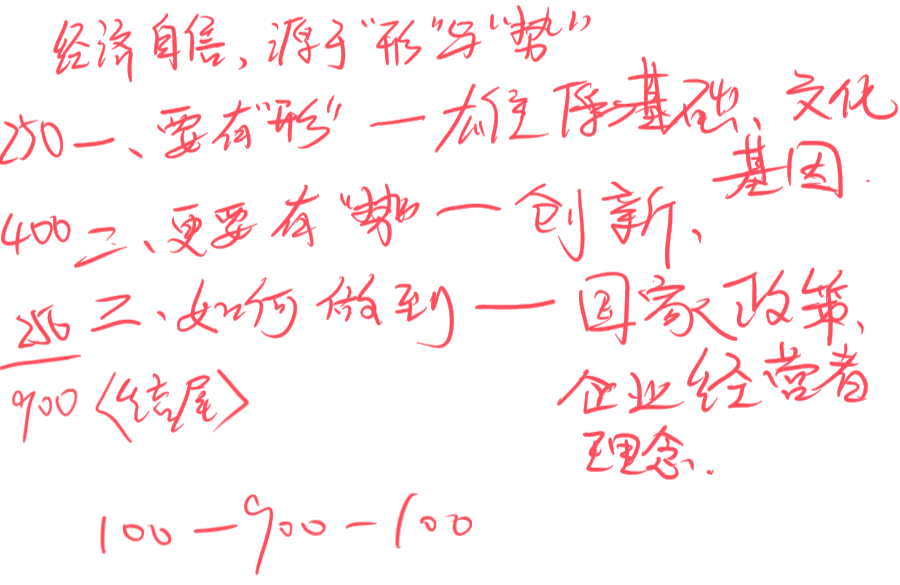 经济自信,源于"形"与"势"
250 一、要有"形" — 雄厚基础、文化
基因.
400 二、更要有"势" — 创新、
250 三、如何做到 — 国家政策、
企业经营者
理念.
900 〈结尾〉
100 — 900 — 100